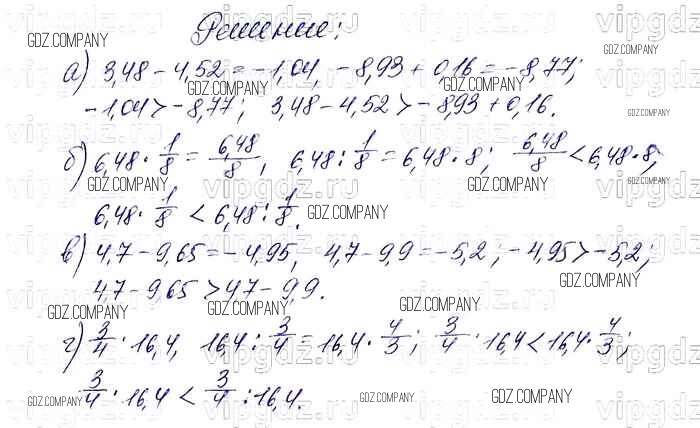 Решение:
а) 3,48 - 4,52 = -1,04, -8,93 + 0,16 = -8,77;
-1,04 > -8,77; 3,48 - 4,52 > -8,93 + 0,16.
б) 6,48 · 1/8 = 6,48/8, 6,48 : 1/8 = 6,48 · 8; 6,48/8 < 6,48 · 8,
6,48 · 1/8 < 6,48 : 1/8.
в) 4,7 - 9,65 = -4,95, 4,7 - 9,9 = -5,2; -4,95 > -5,2;
4,7 - 9,65 > 4,7 - 9,9.
г) 3/4 · 16,4, 16,4 : 3/4 = 16,4 · 4/3; 3/4 · 16,4 < 16,4 · 4/3;
3/4 · 16,4 < 3/4 : 16,4.
GDZ.COMPANY
vipgdz.ru